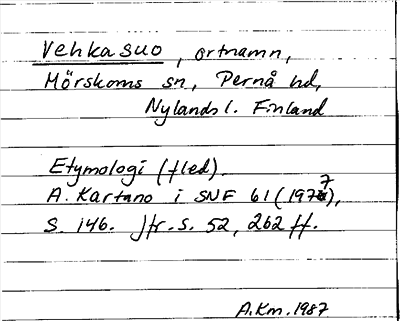 Vehkasuo, ortnamn,
Mörskoms sn, Pernå hd,
Nylands l. Finland
Etymologi (fled).
A. Kartano i SNF 61 (1977),
S. 146. Jfr. s. 52, 262 ff.
A.Km. 1987